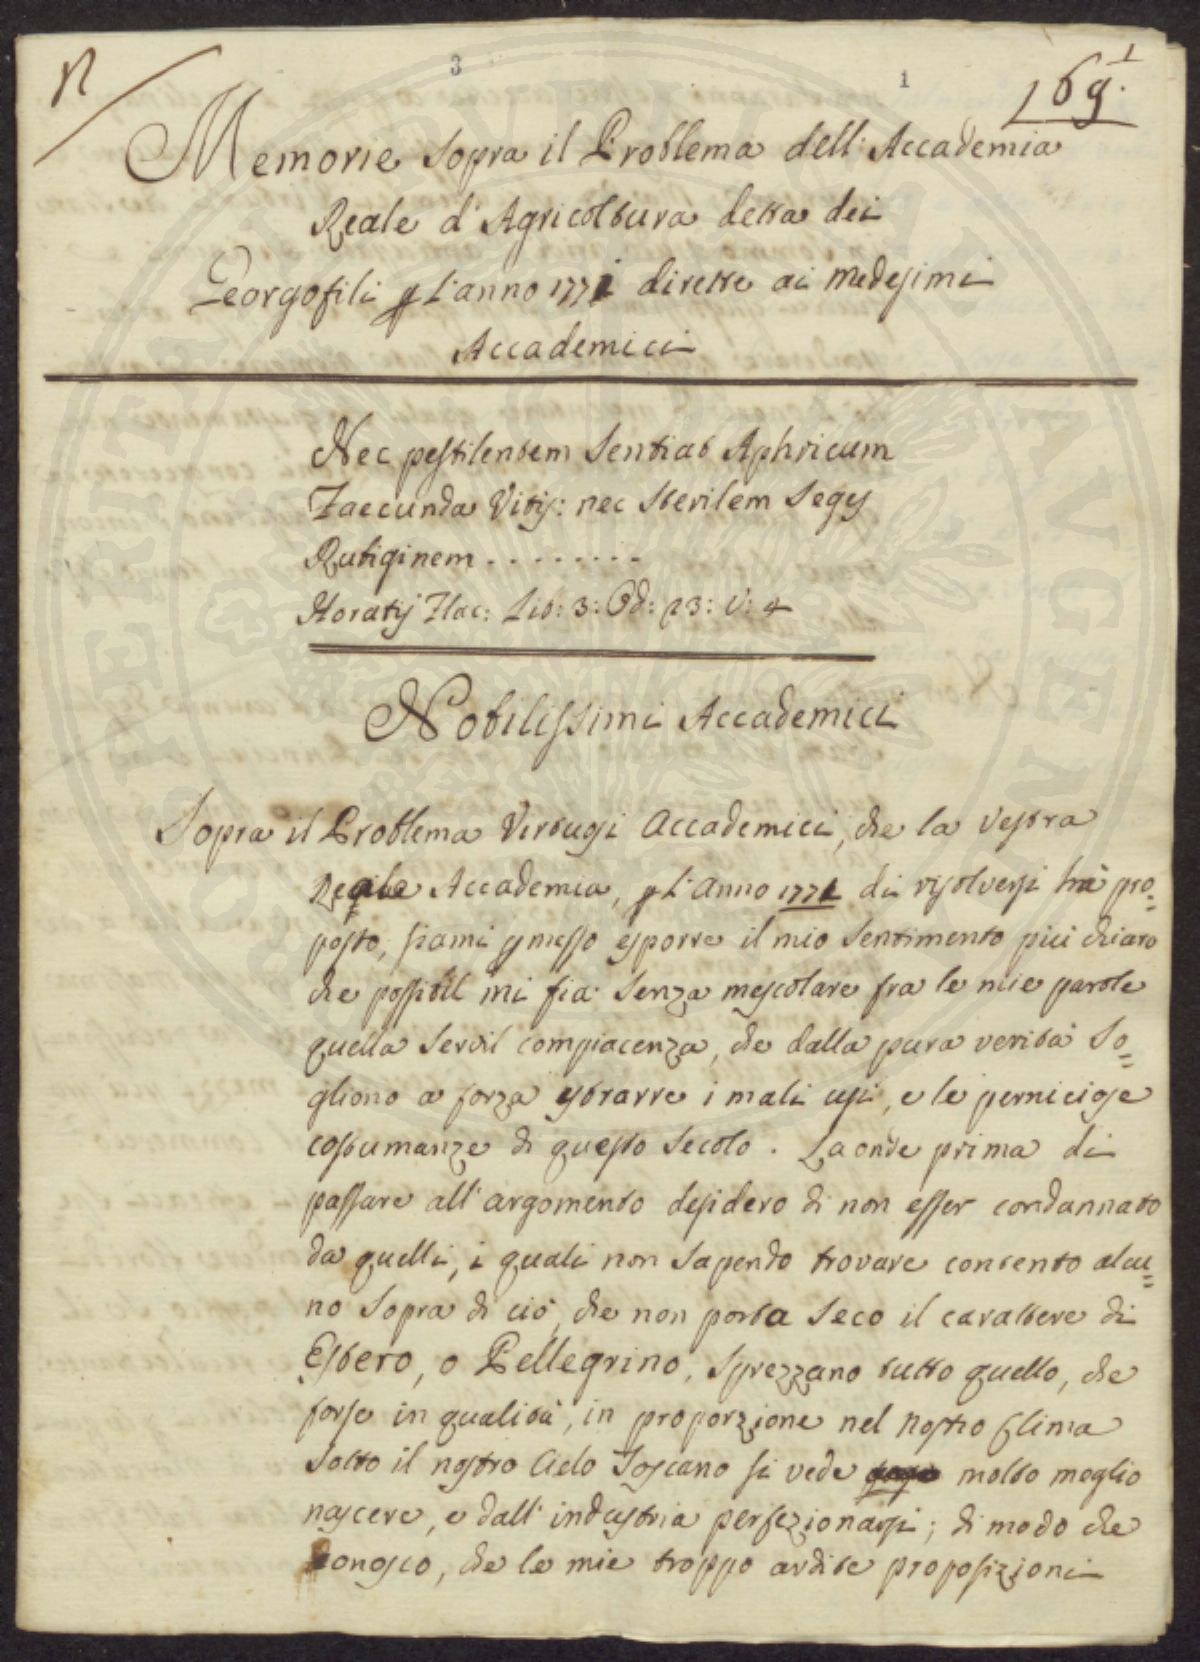 n
3
1
169.1
Memorie sopra il Problema dell'Accademia
Reale d'Agricoltura detta dei
Georgofili p l'anno 1771 dirette ai medesimi
Accademici
Nec pestilentem sentiat Aphricum
Faecunda Vitis: nec sterilem seges
Rubiginem ........
Horatij Flac: Lib: 3: Od: 23: V: 4
Nobilissimi Accademici
Sopra il Problema Virtuosi Accademici, che la vostra
Reale Accademia, p l'anno 1771 di risolversi hà pro=
posto, siami pmesso esporre il mio sentimento più chiaro
che possibil mi sia senza mescolare fra le mie parole
quella servil compiacenza, che dalla pura verità so=
gliono a forza estrarre i mali usi, e le perniciose
costumanze di questo secolo. Laonde prima di
passare all'argomento desidero di non esser condannato
da quelli, i quali non sapendo trovare contento alcu=
no sopra di ciò, che non porta seco il carattere di
Estero, o Pellegrino, sprezzano tutto quello, che
forse in qualità, in proporzione nel nostro Clima
sotto il nostro Cielo Toscano si vede molto meglio
nascere, e dall'industria perfezionarsi; di modo che
conosco, che le mie troppo ardite proposizioni